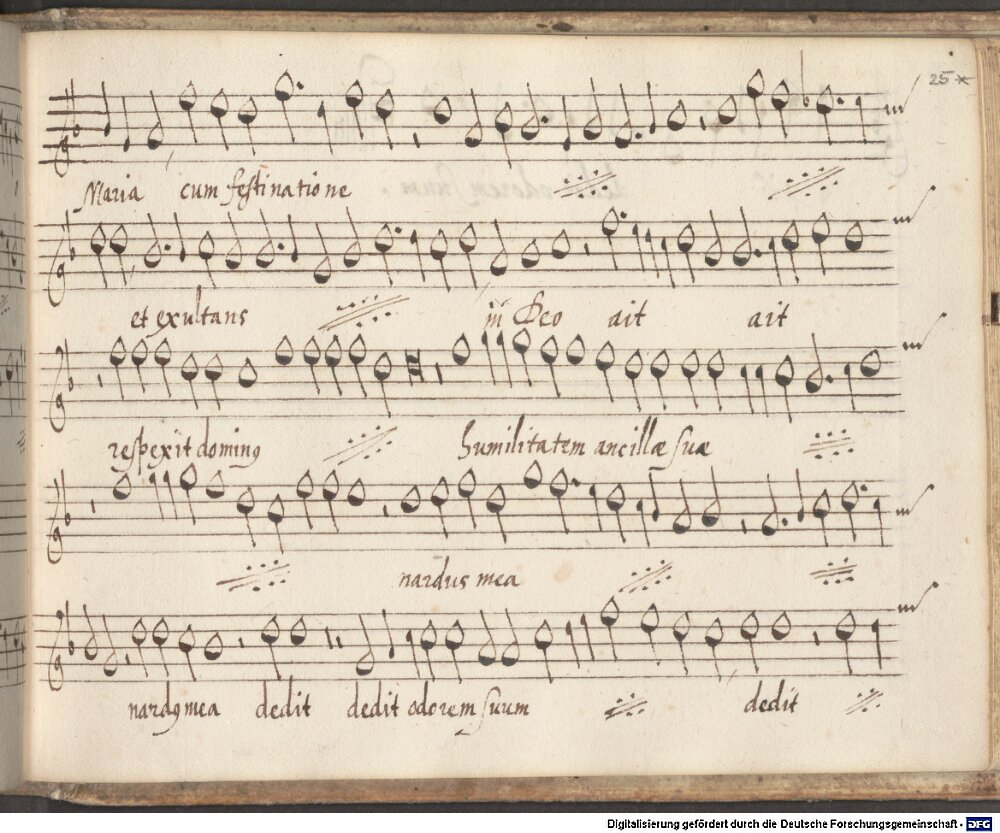 25
Maria cum festinatione
et exultans in Deo ait ait
respexit dominꝰ humilitatem ancillæ suæ
nardus mea
nardꝰ mea dedit dedit odorem suum dedit
Digitalisierung gefördert durch die Deutsche Forschungsgemeinschaft - DFG